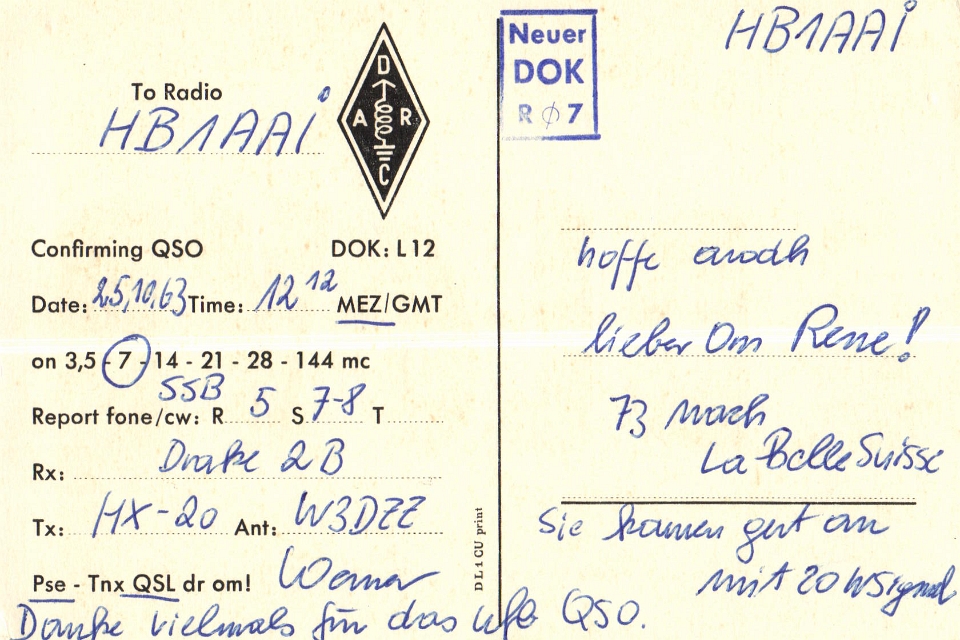 To Radio
HB1AAi
D
A R
C
Confirming QSO DOK: L12
Date: 25,10,63 Time: 12 12 MEZ/GMT
on 3,5 - 7 - 14 - 21 - 28 - 144 mc
SSB
Report fone/cw: R 5 S 7-8 T
Rx: Drake 2B
Tx: HX-20 Ant: W3DZZ
Pse - Tnx QSL dr om! Werner
Danke vielmals für das ufb QSO.
DL1CU print
Neuer
DOK
R Ø 7
HB1AAi
hoffe
lieber Om Rene!
73 nach
La Belle Suisse
Sie kamen gut an
mit 20 W Signal